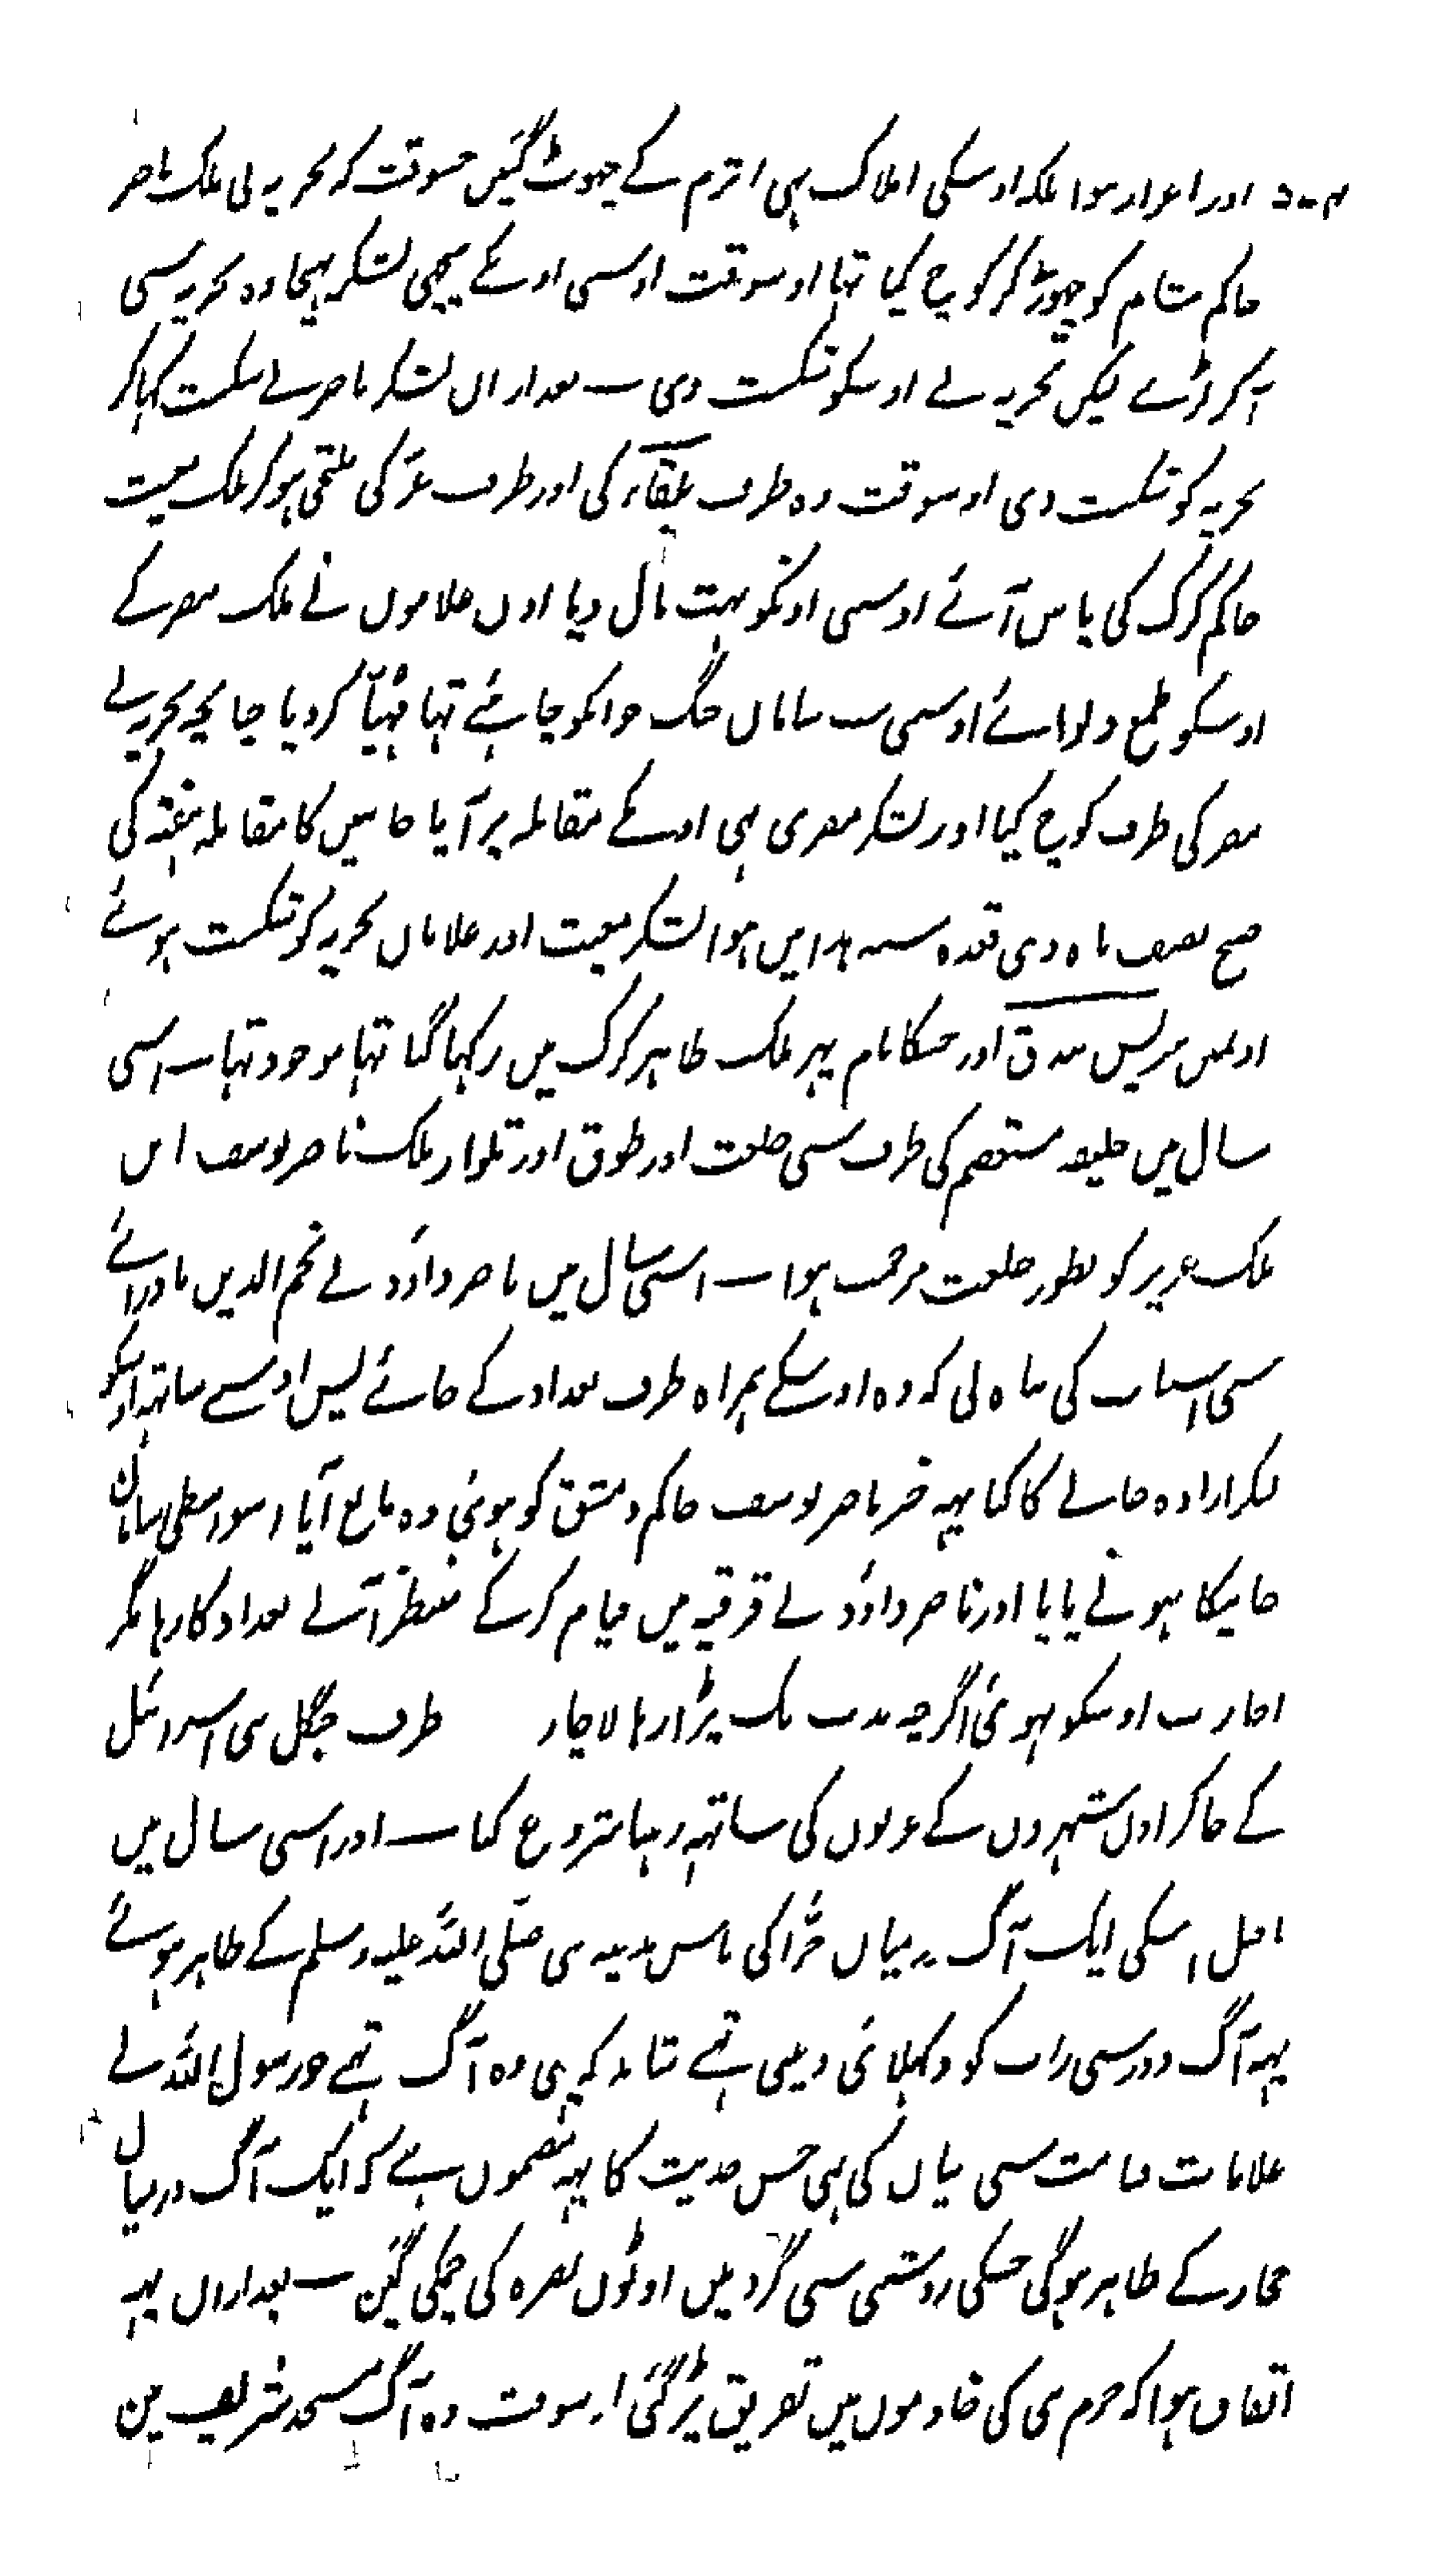 اور اعزاز ہوا بلکہ اوسکی املاک بہی اقرم کے چہوٹ گئیں جسوقت کہ بحریہ نی ملک ناصر
حاکم شام کو چہوڑ کر کوچ کیا تہا اوسوقت اوسی اوسکے پیچہی لشکر بہیجا وہ بحریہ سی
آکر لڑے لیکن بحریہ نے اوسکو شکست دی ۔ بعد ازاں لشکر ناصر نے شکست کہا کر
بحریہ کو شکست دی اوسوقت وہ طرف بلقاء کی اور طرف غزّ کی ملتجی ہو کر ملک مغیث
حاکم کرک کی پاس آئے اوسی اونکو بہت مال دیا اون غلاموں نے ملک مصر کے
اوسکو طمع دلوائے اوسی سب سامان جنگ جو انکو چاہئے تہا مہیّا کردیا چنانچہ بحریہ نے
مصر کی طرف کوچ کیا اور لشکر مصری بہی اوسکے مقابلہ پر آیا جانبین کا مقابلہ ہفتہ کی
صبح نصف ماہ ذی قعدہ سنہ ہذا میں ہوا لشکر مغیث اور غلامان بحریہ کو شکست ہوئے
اونمیں بیبرس بندق اور جسکا نام پہر ملک ظاہر کرک میں رکہا گیا تہا موجود تہا ۔ اسی
سال میں خلیفہ مستعصم کی طرف سی خلعت اور طوق اور تلوار ملک ناصر یوسف ابن
ملک عزیز کو بطور خلعت مرحمت ہوا ۔ اسی سال میں ناصر داؤد نے نجم الدین بادرائے
سی اسبات کی پناہ لی کہ وہ اوسکے ہمراہ طرف بغداد کے جائے پس اوسے ساتہہ اوسکو
لیکر ارادہ جانے کا کیا یہہ خبر ناصر یوسف حاکم دمشق کو ہوئی وہ مانع آیا
جانیکا ہونے پایا اور ناصر داؤد نے قرقیہ میں قیام کرکے منتظر آنے بغداد کا رہا مگر
اجازت اوسکو نہوئی اگرچہ مدت تک پڑا رہا لاچار طرف جنگل بنی اسرائیل
کے جاکر اون شہروں کے عربوں کی ساتہہ رہنا شروع کیا ۔ اور اسی سال میں
اسکی ایک آگ درمیان حرّا کی پاس مدینہ نبی صلّی اللہ علیہ وسلم کے ظاہر ہوئے
یہہ آگ دور سی رات کو دکہلائی دیتی تہے شاید کہ یہی وہ آگ تہے جو رسول اللہ نے
علامات قیامت سی بیان کی ہی جس حدیث کا یہہ مضمون ہے کہ ایک آگ درمیان
حجاز کے ظاہر ہوگی جسکی روشنی سی گردنیں اونٹوں بصرہ کی چمکی گیں ۔ بعد ازاں یہہ
اتفاق ہوا کہ حرم نبی کی خادموں میں تفریق پڑگئی اوسوقت وہ آگ مسجد شریف میں